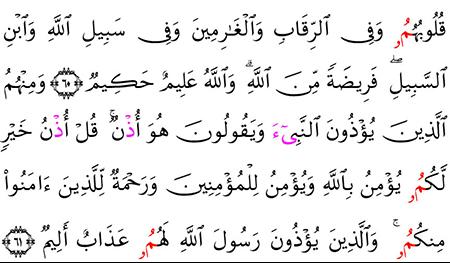 قُلُوبُهُمُۥ وَفِي اِ۬لرِّقَابِ وَالْغَٰرِمِينَ وَفِي سَبِيلِ اِ۬للَّهِ وَابْنِ
اِ۬لسَّبِيلِۖ فَرِيضَةٗ مِّنَ اَ۬للَّهِۗ وَاللَّهُ عَلِيمٌ حَكِيمٞ ٦٠ وَمِنْهُمُ
اُ۬لَّذِينَ يُؤْذُونَ اَ۬لنَّبِيٓءَ وَيَقُولُونَ هُوَ أُذْنٞۚ قُلْ أُذْنُ خَيْرٖ
لَّكُمُۥ يُؤْمِنُ بِاللَّهِ وَيُؤْمِنُ لِلْمُؤْمِنِينَ وَرَحْمَةٞ لِّلَّذِينَ ءَامَنُواْ
مِنكُمُۥۚ وَالَّذِينَ يُؤْذُونَ رَسُولَ اَ۬للَّهِ لَهُمُۥ عَذَابٌ أَلِيمٞ ٦١